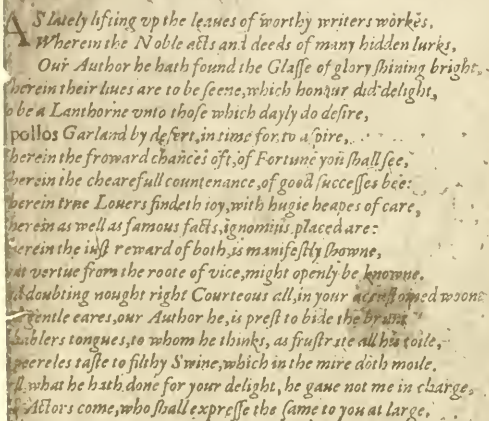 AS lately lifting vp the leaues of worthy writers workes,
Wherein the Noble acts and deeds of many hidden lurks,
Our Author he hath found the Glasse of glory shining bright,
herein their liues are to be seene, which honour did delight,
o be a Lanthorne vnto those which dayly do desire,
pollos Garland by desert, in time for to aspire,
herein the froward chances oft, of Fortune you shall see,
herein the chearefull countenance, of good successes bee:
herein true Louers findeth ioy, with hugie heapes of care,
herein as well as famous facts, ignomius placed are:
herein the iust reward of both, is manifestly showne,
at vertue from the roote of vice, might openly be knowne.
doubting nought right Courteous all, in your accustomed woont
gentle eares, our Author he, is prest to bide the brunt
ablers tongues, to whom he thinks, as frustrate all his toile,
peereles taste to filthy Swine, which in the mire doth moile.
what he hath done for your delight, he gaue not me in charge,
Actors come, who shall expresse the same to you at large,